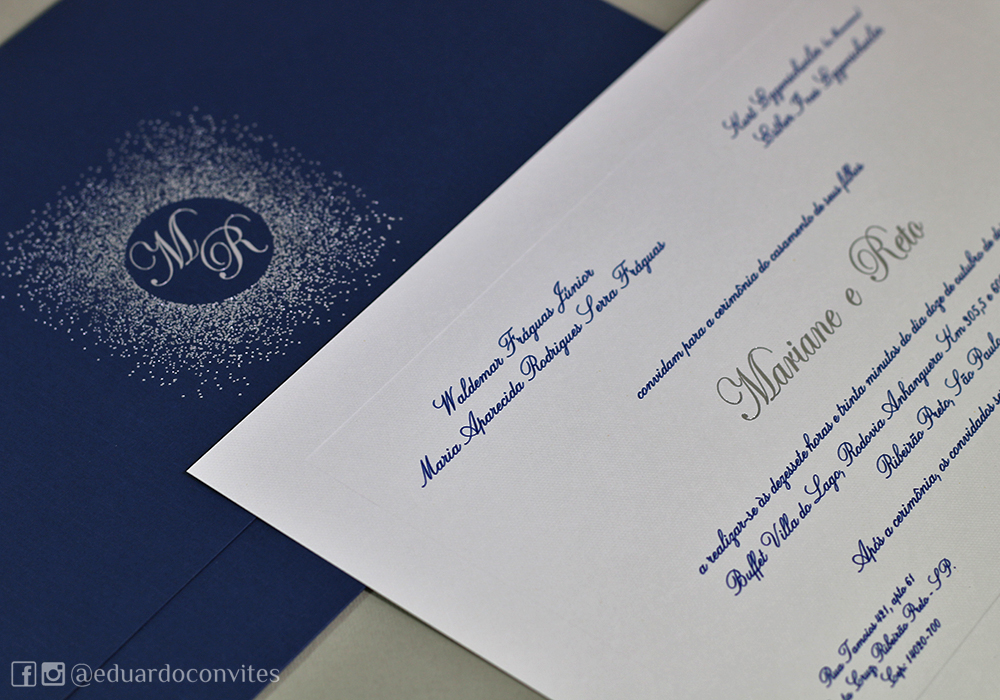 MR
Waldemar Fráguas Júnior
Maria Aparecida Rodrigues Serra Fráguas
(In Memoriam)
convidam para a cerimônia do casamento de seus filhos
Mariane e Reto
a realizar-se às dezessete horas e trinta minutos do dia doze de outubro de
Buffet Villa do Lago, Rodovia Anhanguera Km 305,5 e
Ribeirão Preto, São Paulo
Após a cerimônia, os convidados
Rua Tamoios 421, apto 61
Ribeirão Preto - SP.
14020-700
@eduardoconvites